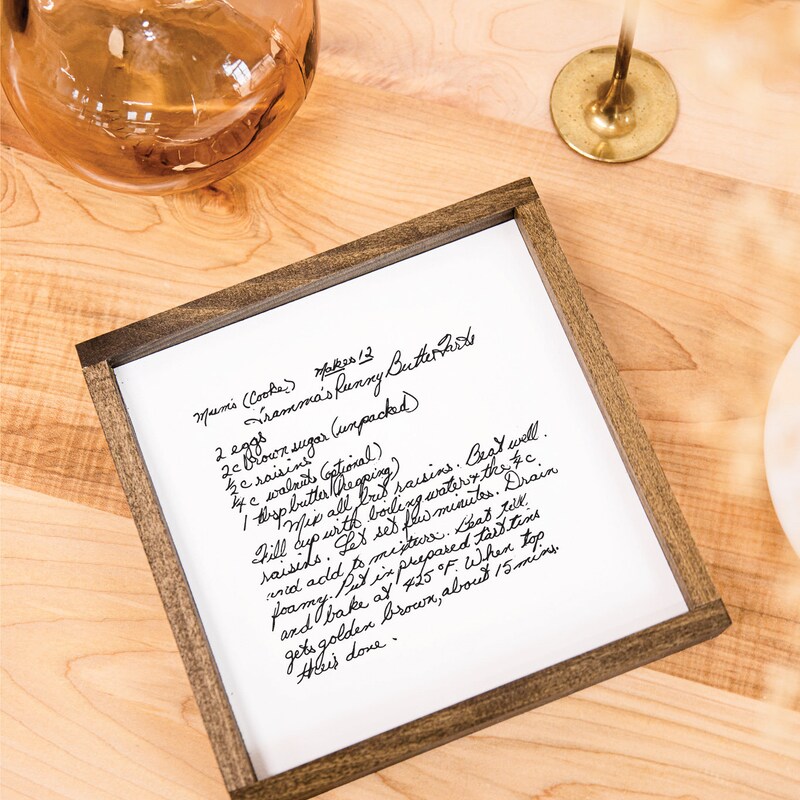 Mum's (Cooke) Makes 12
Gramma's Runny Butter Tarts
2 eggs
2c brown sugar (unpacked)
½c raisins
¼c walnuts (optional)
1 tbsp butter (heaping)
Mix all but raisins. Beat well.
Fill cup with boiling water & the ½c
raisins. Let set few minutes. Drain
and add to mixture. Beat till
foamy. Put in prepared tart tins
and bake at 425°F. When top
gets golden brown, about 15 mins.
their done.